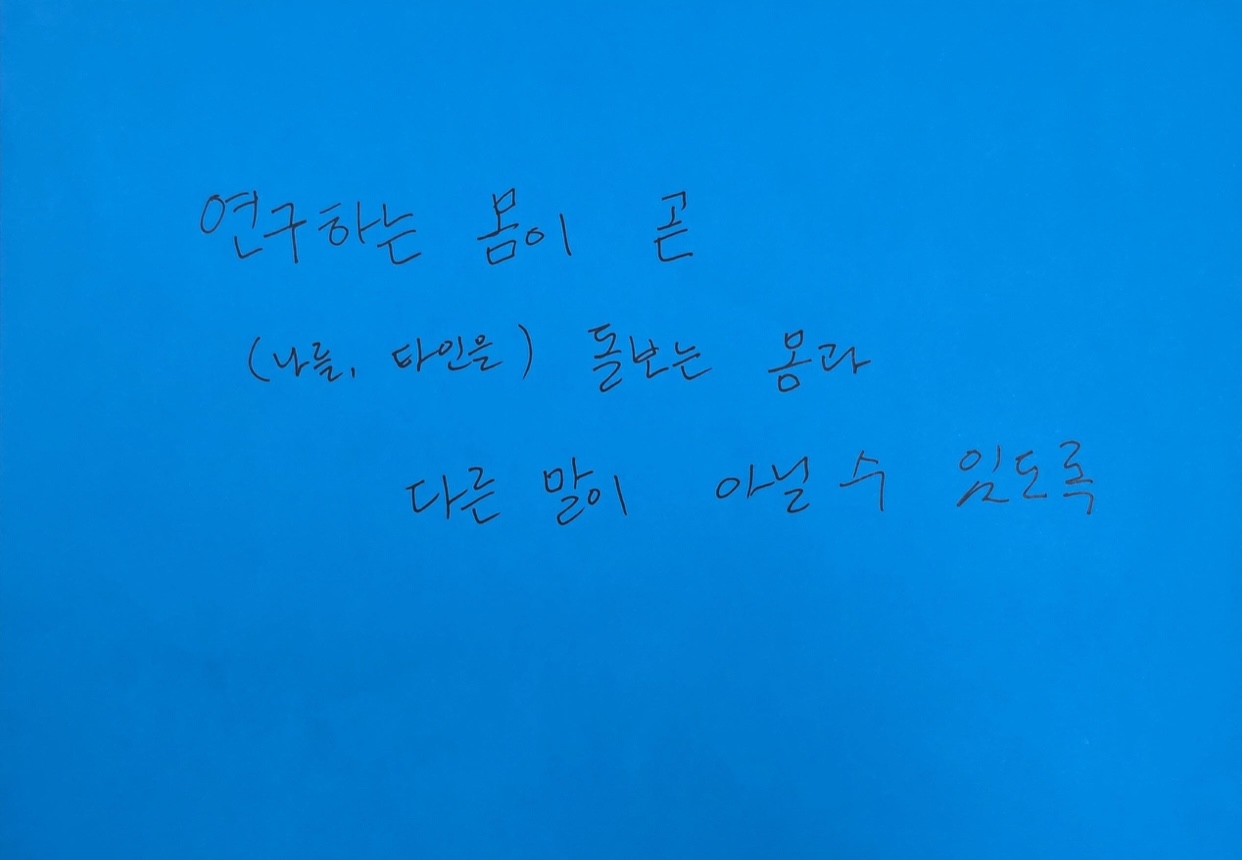 연구하는 몸이 곧
(나를, 타인을) 돌보는 몸과
다른 말이 아닐 수 있도록